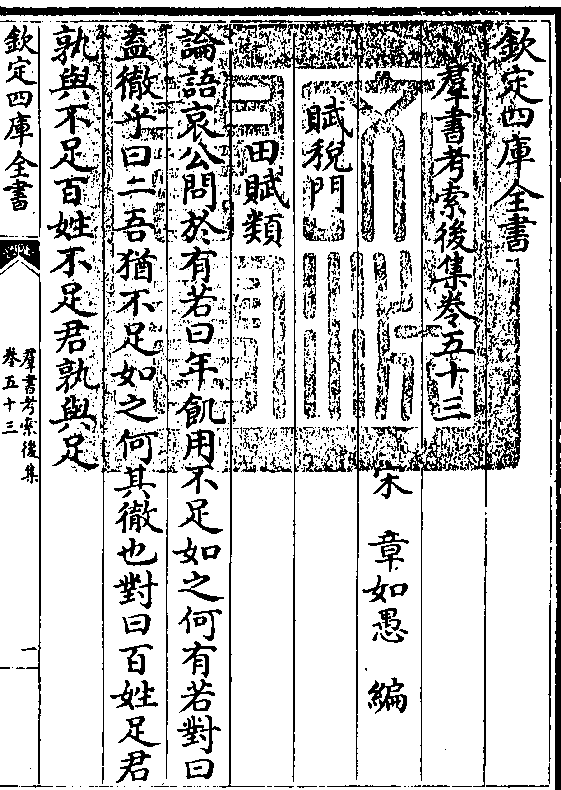 欽定四庫全書
羣書考索後集卷五十三
宋 章如愚 編
賦稅門
田賦類
論語哀公問於有若曰年飢用不足如之何有若對曰
盍徹乎曰二吾猶不足如之何其徹也對曰百姓足君
孰與不足百姓不足君孰與足
欽定四庫全書
羣書考索後集
卷五十三
一